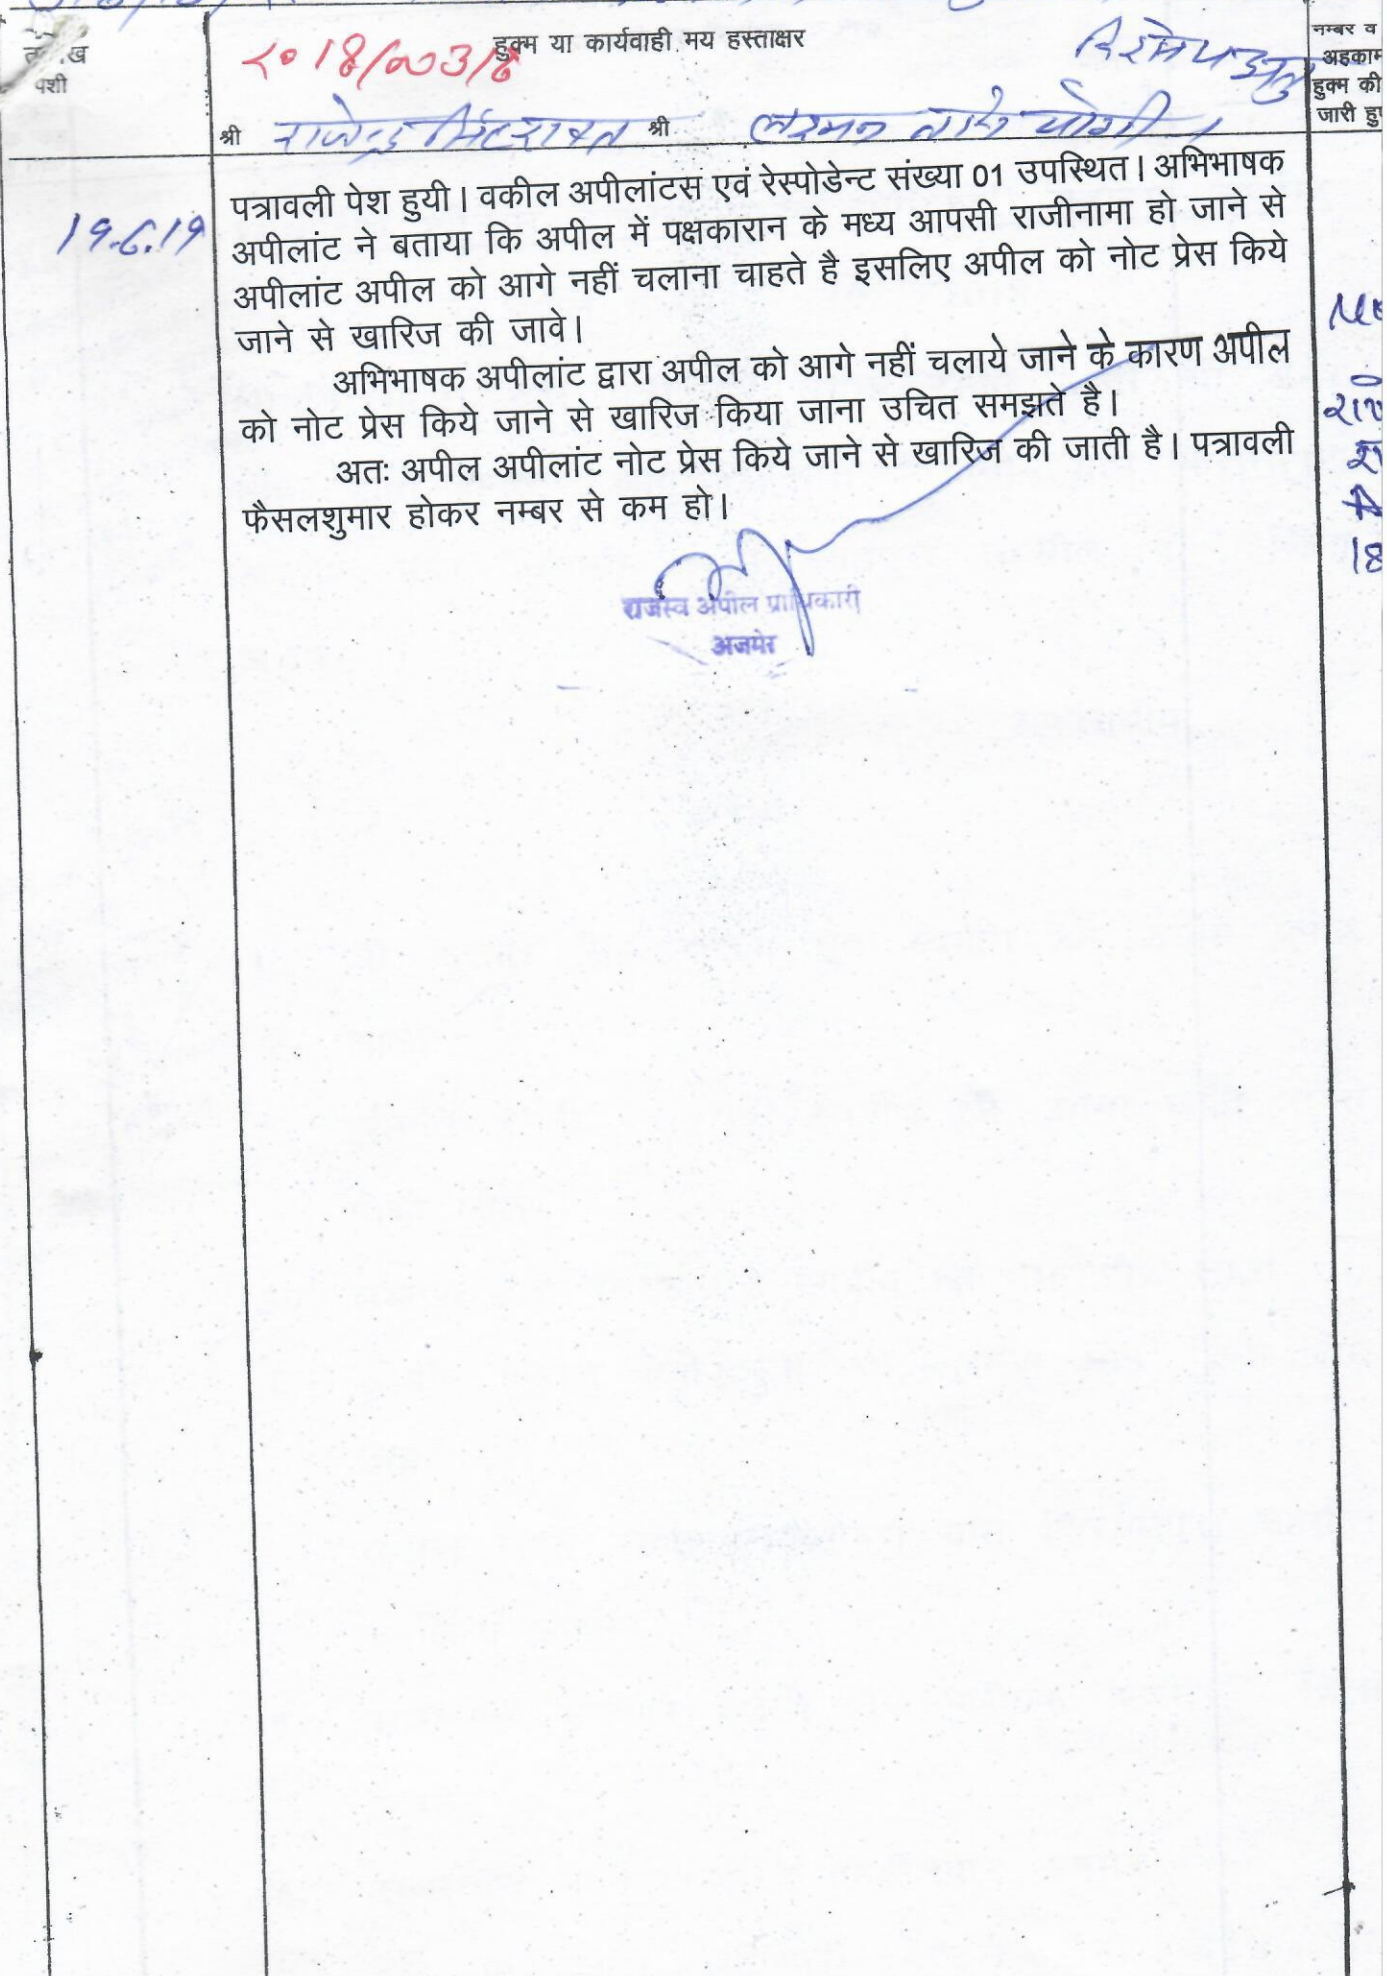 हुक्म या कार्यवाही मय हस्ताक्षर
नम्बर व
अहकाम
हुक्म की
जारी हु
पेशी
श्री राजेन्द्र सिंह रावत श्री
19.6.19
पत्रावली पेश हुयी। वकील अपीलांटस एवं रेस्पोडेन्ट संख्या 01 उपस्थित। अभिभाषक
अपीलांट ने बताया कि अपील में पक्षकारान के मध्य आपसी राजीनामा हो जाने से
अपीलांट अपील को आगे नहीं चलाना चाहते है इसलिए अपील को नोट प्रेस किये
जाने से खारिज की जावे।
अभिभाषक अपीलांट द्वारा अपील को आगे नहीं चलाये जाने के कारण अपील
को नोट प्रेस किये जाने से खारिज किया जाना उचित समझते है।
अतः अपील अपीलांट नोट प्रेस किये जाने से खारिज की जाती है। पत्रावली
फैसलशुमार होकर नम्बर से कम हो।
राजस्व अपील प्राधिकारी
अजमेर
18